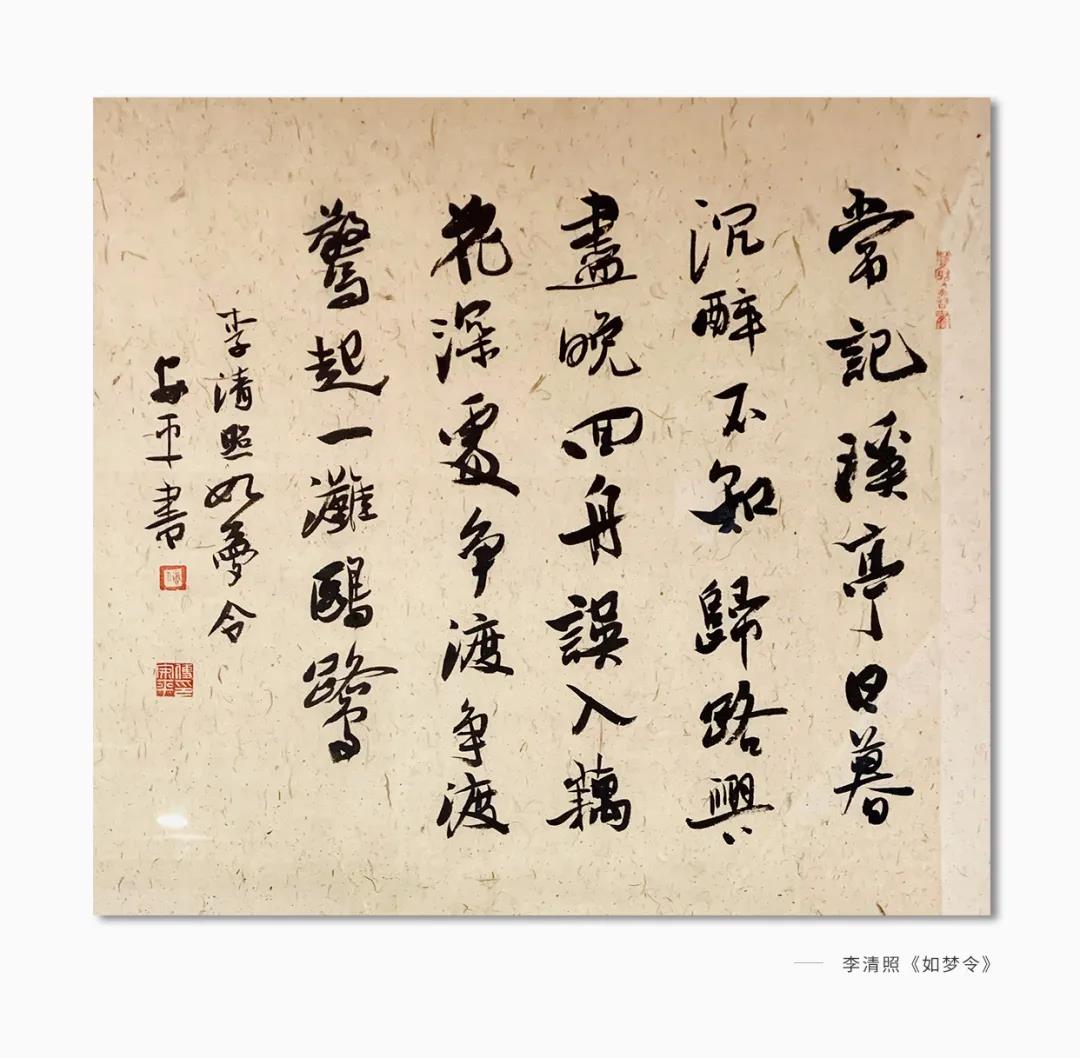 常記溪亭日暮
沉醉不知歸路興
盡晚回舟誤入藕
花深處争渡争渡
驚起一灘鷗鷺
李清照如夢令
安平書
李清照《如梦令》